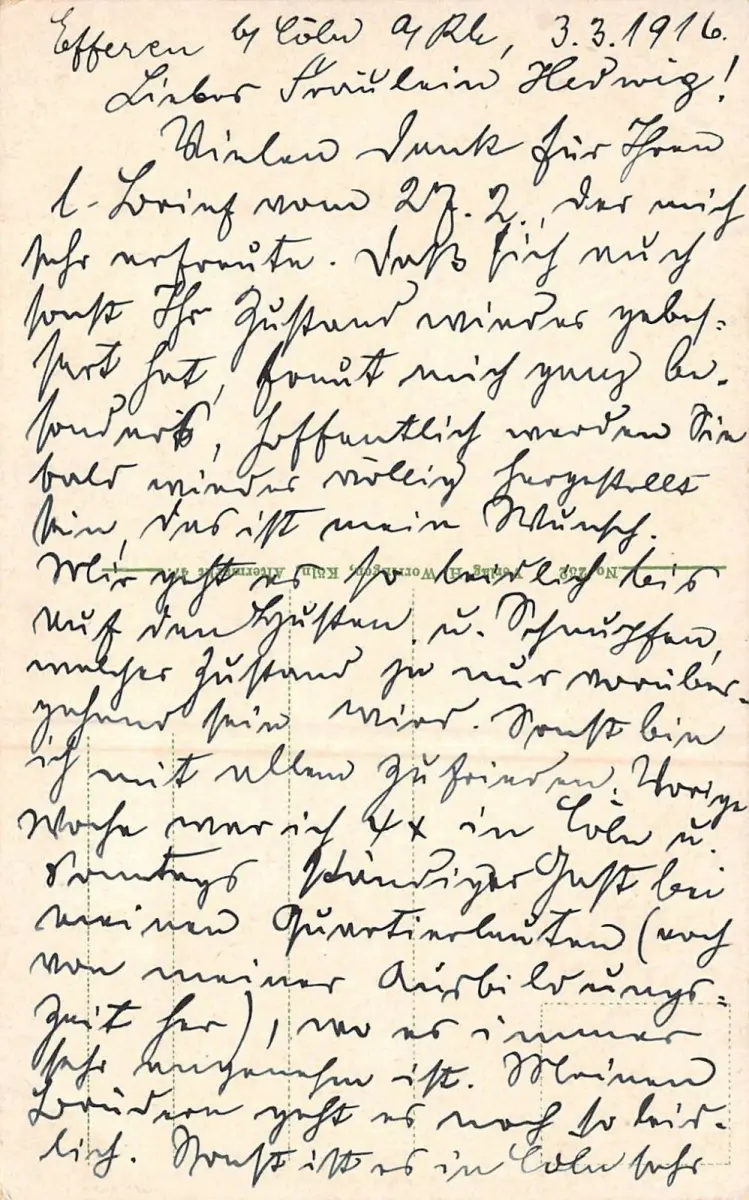 Efferen b/ Cöln a/ Rh, 3.3.1916.
Liebes Fräulein Hedwig!
Vielen Dank für Ihren
l. Brief vom 27.2., der mich
sehr erfreute. Daß sich auch
sonst Ihr Zustand wieder gebes=
sert hat, freut mich ganz be-
sonders, hoffentlich werden Sie
bald wieder völlig hergestellt
sein, das ist mein Wunsch.
No. 252 Verlag H. Worringen, Köln, Altermarkt
Mir geht es so leidlich bis
auf den Husten u. Schnupfen,
welcher Zustand ja nur vorüber-
gehend sein wird. Sonst bin
ich mit allem zufrieden. Vorige
Woche war ich 4x in Cöln u.
Sonntags ständiger Gast bei
meinen Quartiersleuten (noch
von meiner Ausbildungs=
zeit her), wo es immer
sehr angenehm ist. Meinen
Brüdern geht es noch so leid-
lich. Sonst ist es in Cöln sehr